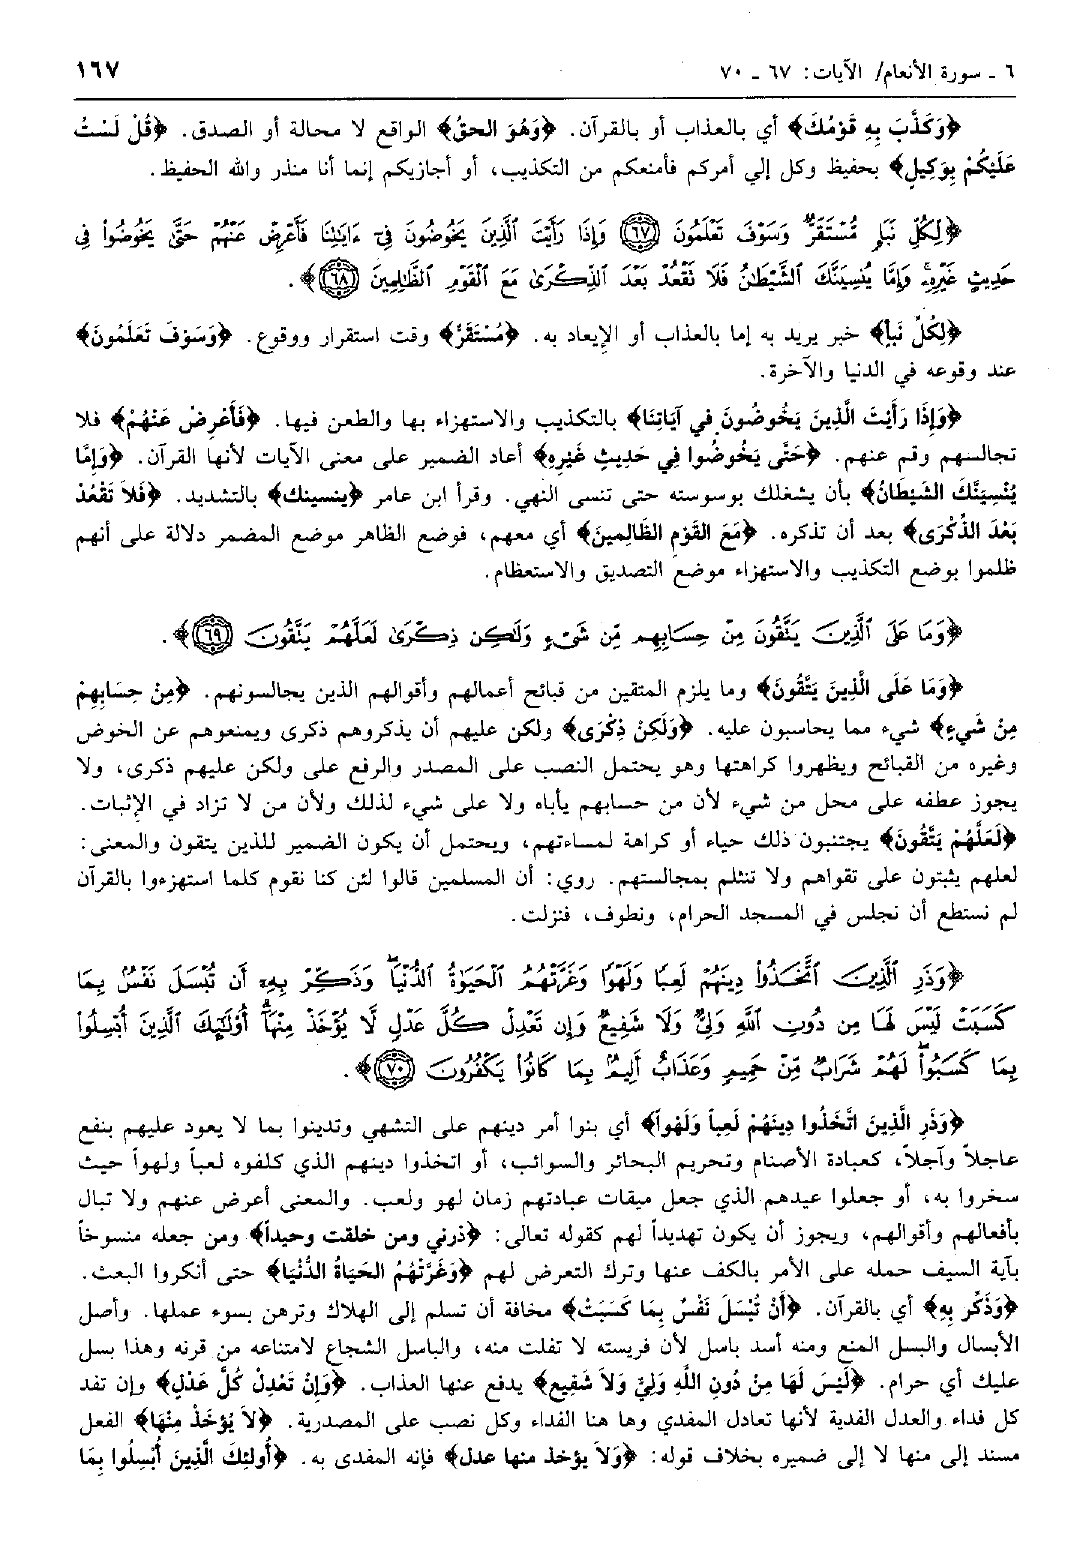 ٦ ـ سورة الأنعام/ الآيات: ٦٧ ـ ٧٠
١٦٧
﴿وَكَذَّبَ بِهِ قَوْمُكَ﴾ أي بالعذاب أو بالقرآن. ﴿وَهُوَ الحَقُّ﴾ الواقع لا محالة أو الصدق. ﴿قُلْ لَسْتُ
عَلَيْكُمْ بِوَكِيلٍ﴾ بحفيظ وكل إلي أمركم فأمنعكم من التكذيب، أو أجازيكم إنما أنا منذر والله الحفيظ.
﴿لِكُلِّ نَبَإٍ مُّسْتَقَرٌّ وَسَوْفَ تَعْلَمُونَ ﴿٦٧﴾ وَإِذَا رَأَيْتَ ٱلَّذِينَ يَخُوضُونَ فِىٓ ءَايَٰتِنَا فَأَعْرِضْ عَنْهُمْ حَتَّىٰ يَخُوضُوا۟ فِى
حَدِيثٍ غَيْرِهِۦ وَإِمَّا يُنسِيَنَّكَ ٱلشَّيْطَٰنُ فَلَا تَقْعُدْ بَعْدَ ٱلذِّكْرَىٰ مَعَ ٱلْقَوْمِ ٱلظَّٰلِمِينَ ﴿٦٨﴾﴾.
﴿لِكُلِّ نَبَإٍ﴾ خبر يريد به إما بالعذاب أو الإيعاد به. ﴿مُسْتَقَرٌّ﴾ وقت استقرار ووقوع. ﴿وَسَوْفَ تَعْلَمُونَ﴾
عند وقوعه في الدنيا والآخرة.
﴿وَإِذَا رَأَيْتَ الَّذِينَ يَخُوضُونَ فِي آيَاتِنَا﴾ بالتكذيب والاستهزاء بها والطعن فيها. ﴿فَأَعْرِضْ عَنْهُمْ﴾ فلا
تجالسهم وقم عنهم. ﴿حَتَّى يَخُوضُوا فِي حَدِيثٍ غَيْرِهِ﴾ أعاد الضمير على معنى الآيات لأنها القرآن. ﴿وَإِمَّا
يُنْسِيَنَّكَ الشَيطَانُ﴾ بأن يشغلك بوسوسته حتى تنسى النهي. وقرأ ابن عامر ﴿ينسينك﴾ بالتشديد. ﴿فَلاَ تَقْعُدْ
بَعْدَ الذِّكْرَى﴾ بعد أن تذكره. ﴿مَعَ القَوْمِ الظَالِمِينَ﴾ أي معهم، فوضع الظاهر موضع المضمر دلالة على أنهم
ظلموا بوضع التكذيب والاستهزاء موضع التصديق والاستعظام.
﴿وَمَا عَلَى ٱلَّذِينَ يَتَّقُونَ مِنْ حِسَابِهِم مِّن شَىْءٍ وَلَٰكِن ذِكْرَىٰ لَعَلَّهُمْ يَتَّقُونَ ﴿٦٩﴾﴾.
﴿وَمَا عَلَى الَّذِينَ يَتَّقُونَ﴾ وما يلزم المتقين من قبائح أعمالهم وأقوالهم الذين يجالسونهم. ﴿مِنْ حِسَابِهِمْ
مِنْ شَيءٍ﴾ شيء مما يحاسبون عليه. ﴿وَلَكِنْ ذِكْرَى﴾ ولكن عليهم أن يذكروهم ذكرى ويمنعوهم عن الخوض
وغيره من القبائح ويظهروا كراهتها وهو يحتمل النصب على المصدر والرفع على ولكن عليهم ذكرى، ولا
يجوز عطفه على محل من شيء لأن من حسابهم يأباه ولا على شيء لذلك ولأن من لا تزاد في الإثبات.
﴿لَعَلَّهُمْ يَتَّقُونَ﴾ يجتنبون ذلك حياء أو كراهة لمساءتهم، ويحتمل أن يكون الضمير للذين يتقون والمعنى:
لعلهم يثبتون على تقواهم ولا تنثلم بمجالستهم. روي: أن المسلمين قالوا لئن كنا نقوم كلما استهزءوا بالقرآن
لم نستطع أن نجلس في المسجد الحرام، ونطوف، فنزلت.
﴿وَذَرِ ٱلَّذِينَ ٱتَّخَذُوا۟ دِينَهُمْ لَعِبًا وَلَهْوًا وَغَرَّتْهُمُ ٱلْحَيَوٰةُ ٱلدُّنْيَا وَذَكِّرْ بِهِۦٓ أَن تُبْسَلَ نَفْسٌۢ بِمَا
كَسَبَتْ لَيْسَ لَهَا مِن دُونِ ٱللَّهِ وَلِىٌّ وَلَا شَفِيعٌ وَإِن تَعْدِلْ كُلَّ عَدْلٍ لَّا يُؤْخَذْ مِنْهَآ أُو۟لَٰٓئِكَ ٱلَّذِينَ أُبْسِلُوا۟
بِمَا كَسَبُوا۟ لَهُمْ شَرَابٌ مِّنْ حَمِيمٍ وَعَذَابٌ أَلِيمٌۢ بِمَا كَانُوا۟ يَكْفُرُونَ ﴿٧٠﴾﴾.
﴿وَذَرِ الَّذِينَ اتَّخَذُوا دِينَهُمْ لَعِباً وَلَهْواً﴾ أي بنوا أمر دينهم على التشهي وتدينوا بما لا يعود عليهم بنفع
عاجلاً وآجلاً، كعبادة الأصنام وتحريم البحائر والسوائب، أو اتخذوا دينهم الذي كلفوه لعباً ولهواً حيث
سخروا به، أو جعلوا عيدهم الذي جعل ميقات عبادتهم زمان لهو ولعب. والمعنى أعرض عنهم ولا تبال
بأفعالهم وأقوالهم، ويجوز أن يكون تهديداً لهم كقوله تعالى: ﴿ذرني ومن خلقت وحيداً﴾ ومن جعله منسوخاً
بآية السيف حمله على الأمر بالكف عنها وترك التعرض لهم ﴿وَغَرَّتْهُمُ الحَيَاةُ الدُّنْيَا﴾ حتى أنكروا البعث.
﴿وَذَكِّر بِهِ﴾ أي بالقرآن. ﴿أَنْ تُبْسَلَ نَفْسٌ بِمَا كَسَبَتْ﴾ مخافة أن تسلم إلى الهلاك وترهن بسوء عملها. وأصل
الأبسال والبسل المنع ومنه أسد باسل لأن فريسته لا تفلت منه، والباسل الشجاع لامتناعه من قرنه وهذا بسل
عليك أي حرام. ﴿لَيْسَ لَهَا مِنْ دُونِ اللَّهِ وَلِيٌّ وَلاَ شَفِيع﴾ يدفع عنها العذاب. ﴿وَإِنْ تَعْدِلْ كُلَّ عَدْلٍ﴾ وإن تفد
كل فداء والعدل الفدية لأنها تعادل المفدي وها هنا الفداء وكل نصب على المصدرية. ﴿لاَ يُؤْخَذْ مِنْهَا﴾ الفعل
مسند إلى منها لا إلى ضميره بخلاف قوله: ﴿وَلاَ يؤخذ منها عدل﴾ فإنه المفدى به. ﴿أُولئِكَ الَّذِينَ أُبْسِلُوا بِمَا